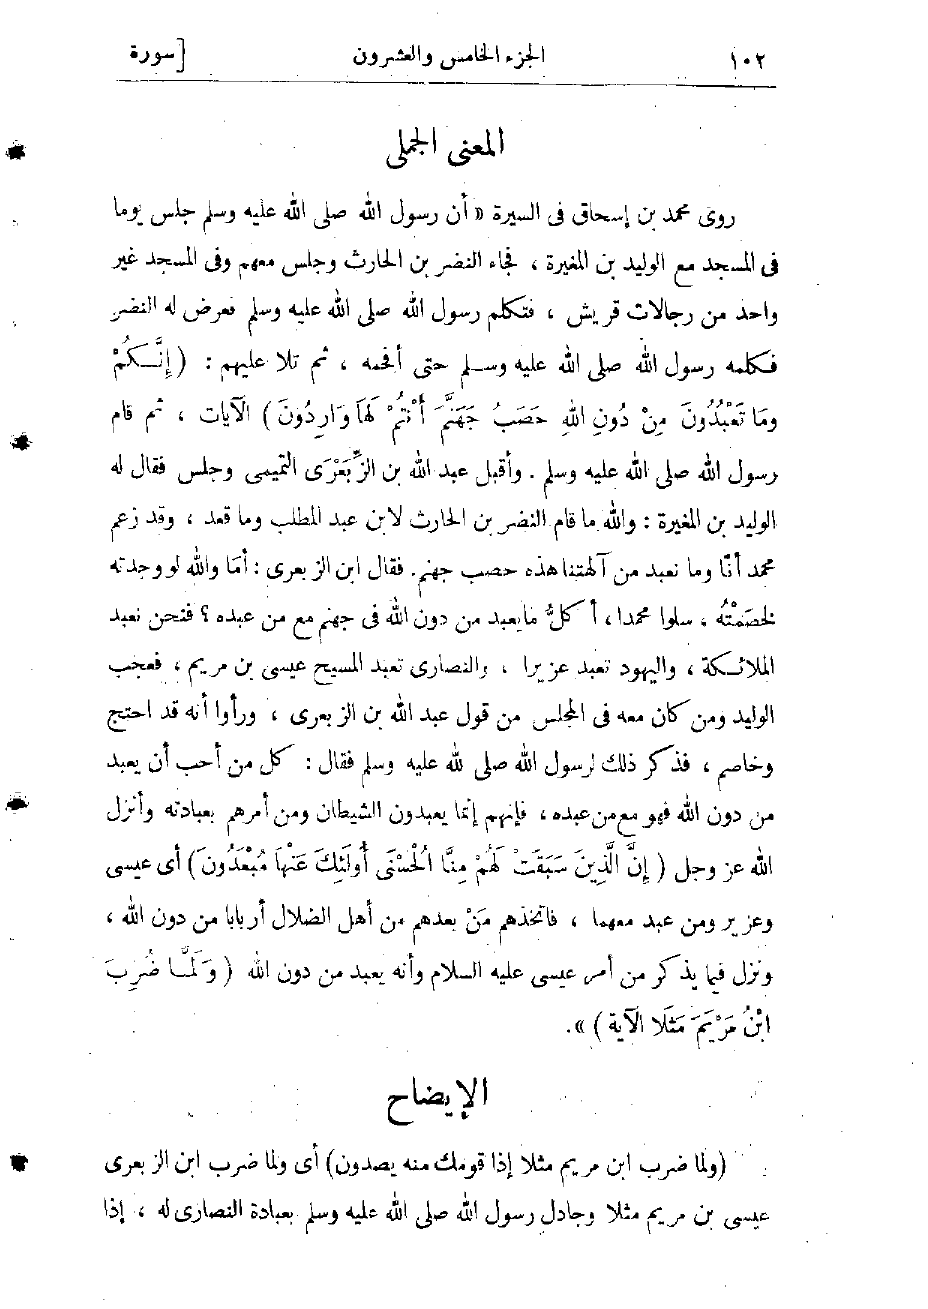 ١٠٢ الجزء الخامس والعشرون [سورة
المعنى الجملى
روى محمد بن إسحاق فى السيرة « أن رسول الله صلى الله عليه وسلم جلس يوما
فى المسجد مع الوليد بن المغيرة ، فجاء النضر بن الحارث وجلس معهم وفى المسجد غير
واحد من رجالات قريش ، فتكلم رسول الله صلى الله عليه وسلم فعرض له النضر
فكلمه رسول الله صلى الله عليه وسلم حتى أفحمه ، ثم تلا عليهم : ( إِنَّكُمْ
وَمَا تَعْبُدُونَ مِنْ دُونِ اللهِ حَصَبُ جَهَنَّمَ أَنْتُمْ لَهَا وَارِدُونَ ) الآيات ، ثم قام
رسول الله صلى الله عليه وسلم . وأقبل عبد الله بن الزِّبَعْرَى التميمى وجلس فقال له
الوليد بن المغيرة : والله ما قام النضر بن الحارث لابن عبد المطلب وما قعد ، وقد زعم
محمد أنّا وما نعبد من آلهتنا هذه حصب جهنم. فقال ابن الزبعرى : أمَا والله لو وجدته
لخصَمْتُه ، سلوا محمدا، أكلُّ ما يعبد من دون الله فى جهنم مع من عبده ؟ فنحن نعبد
الملائكة ، واليهود تعبد عزيرا ، والنصارى تعبد المسيح عيسى بن مريم ، فعجب
الوليد ومن كان معه فى المجلس من قول عبد الله بن الزبعرى ، ورأوا أنه قد احتج
وخاصم ، فذكر ذلك لرسول الله صلى لله عليه وسلم فقال : كل من أحب أن يعبد
من دون الله فهو مع من عبده ، فإنهم إنما يعبدون الشيطان ومن أمرهم بعبادته وأنزل
الله عز وجل ( إِنَّ الَّذِينَ سَبَقَتْ لَهُمْ مِنَّا الْحُسْنَى أُولَئِكَ عَنْهَا مُبْعَدُونَ ) أى عيسى
وعزير ومن عبد معهما ، فاتخذهم مَنْ بعدهم من أهل الضلال أربابا من دون الله ،
ونزل فيما يذكر من أمر عيسى عليه السلام وأنه يعبد من دون الله ( وَلَمَّا ضُرِبَ
ابْنُ مَرْيَمَ مَثَلًا الآية ) ».
الإيضاح
(ولما ضرب ابن مريم مثلا إذا قومك منه يصدون) أى ولما ضرب ابن الزبعرى
عيسى بن مريم مثلا وجادل رسول الله صلى الله عليه وسلم بعبادة النصارى له ، إذا